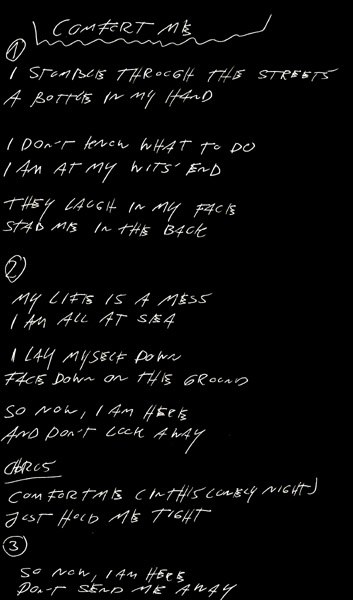 COMFORT ME
1
I STUMBLE THROUGH THE STREETS
A BOTTLE IN MY HAND
I DON'T KNOW WHAT TO DO
I AM AT MY WITS' END
THEY LAUGH IN MY FACE
STAB ME IN THE BACK
2
MY LIFE IS A MESS
I AM ALL AT SEA
I LAY MYSELF DOWN
FACE DOWN ON THE GROUND
SO NOW, I AM HERE
AND DON'T LOOK AWAY
CHORUS
COMFORT ME (IN THIS LONELY NIGHT)
JUST HOLD ME TIGHT
3
SO NOW, I AM HERE
DON'T SEND ME AWAY